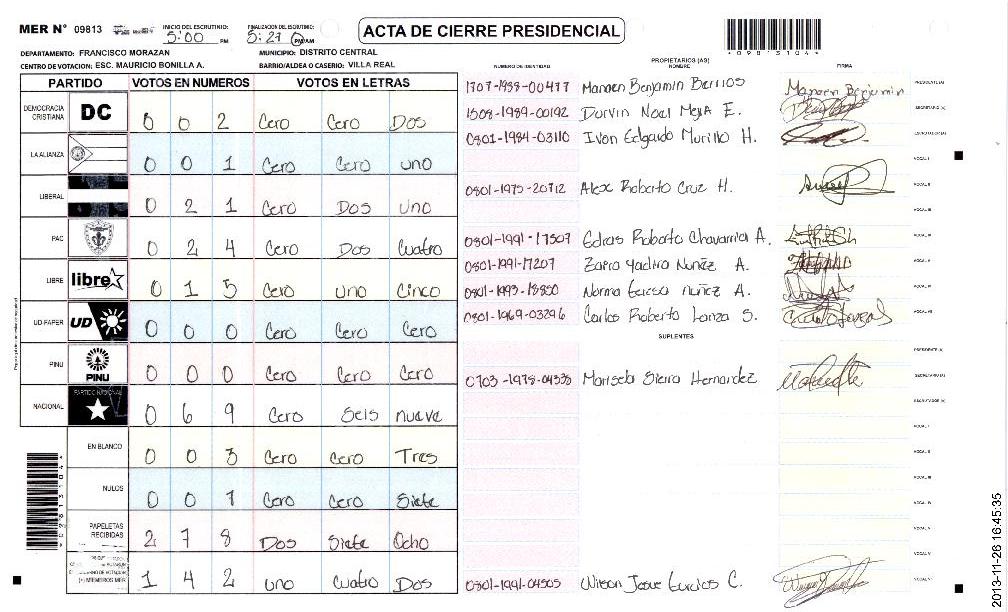 MER N° 09813 INICIO DEL ESCRUTINIO: 5:00 PM FINALIZACION DEL ESCRUTINIO: 5:27 PM/AM ACTA DE CIERRE PRESIDENCIAL
*09813104*
DEPARTAMENTO: FRANCISCO MORAZAN MUNICIPIO: DISTRITO CENTRAL
CENTRO DE VOTACION: ESC. MAURICIO BONILLA A. BARRIO/ALDEA O CASERIO: VILLA REAL
PROPIETARIOS (AS)
NUMERO DE IDENTIDAD NOMBRE FIRMA
PARTIDO VOTOS EN NUMEROS VOTOS EN LETRAS
DEMOCRACIA CRISTIANA DC 0 0 2 Cero Cero Dos
LA ALIANZA 0 0 1 Cero Cero uno
LIBERAL 0 2 1 Cero Dos uno
PAC 0 2 4 Cero Dos Cuatro
LIBRE libre 0 1 5 Cero uno Cinco
UD-FAPER UD 0 0 0 Cero Cero Cero
PINU PINU 0 0 0 Cero Cero Cero
NACIONAL PARTIDO NACIONAL 0 6 9 Cero Seis nueve
EN BLANCO 0 0 3 Cero Cero Tres
NULOS 0 0 7 Cero Cero Siete
PAPELETAS RECIBIDAS 2 7 8 Dos Siete Ocho
(+) MIEMBROS MER 1 4 2 uno Cuatro Dos
1707-1988-00477 Manaen Benjamin Berrios Manaen Benjamin PRESIDENTE (A)
1508-1989-00192 Darvin Noal Meya E. SECRETARIO (A)
0801-1984-03110 Ivon Edgardo Murillo H. ESCRUTADOR (A)
VOCAL I
0801-1975-20712 Alex Roberto Cruz H. VOCAL II
VOCAL III
0801-1991-17507 Edras Roberto Chavarria A. VOCAL IV
0801-1991-17207 Zaira Yadira Nuñez A. VOCAL V
0801-1993-18850 Norma Teresa Nuñez A. VOCAL VI
0801-1969-03296 Carlos Roberto Lanza S. VOCAL VII
SUPLENTES
PRESIDENTE (A)
0703-1978-04535 Marisela Sierra Hernandez SECRETARIO (A)
ESCRUTADOR (A)
VOCAL I
VOCAL II
VOCAL III
VOCAL IV
VOCAL V
VOCAL VI
0801-1991-04505 Wilson Josue C. VOCAL VII
2013-11-26 16:45:35